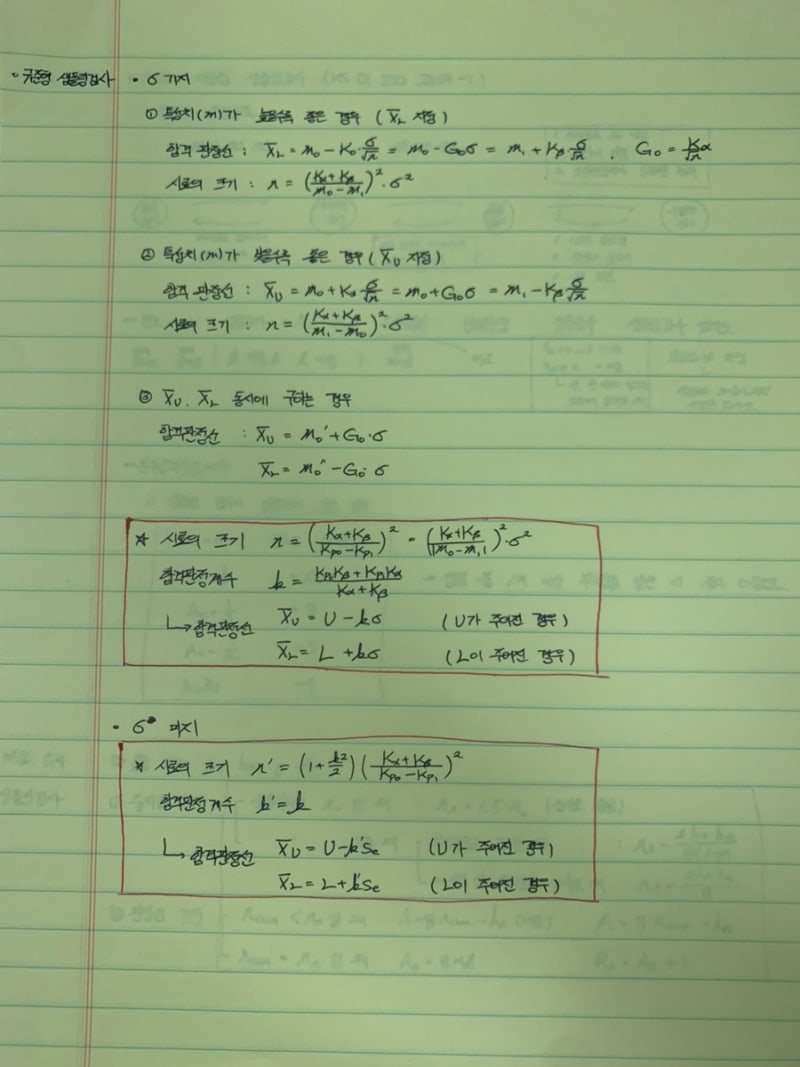 · 규준형 샘플링검사 · σ 기지
① 특성치(m)가 높을수록 좋은 경우 (X̄L 지정)
합격 판정선 : X̄L = m₀ - K₀ σ/√n = m₀ - G₀σ = m₁ + Kβ σ/√n , G₀ = Kα/√n
시료의 크기 : n = ((Kα+Kβ)/(m₀-m₁))²·σ²
② 특성치(m)가 낮을수록 좋은 경우 (X̄U 지정)
합격 판정선 : X̄U = m₀ + Kα σ/√n = m₀ + G₀σ = m₁ - Kβ σ/√n
시료의 크기 : n = ((Kα+Kβ)/(m₁-m₀))²·σ²
③ X̄U, X̄L 동시에 구하는 경우
합격판정선 : X̄U = m₀′ + G₀·σ
X̄L = m₀″ - G₀·σ
☆ 시료의 크기 n = ((Kα+Kβ)/(Kp₀-Kp₁))² = ((Kα+Kβ)/|m₀-m₁|)²·σ²
합격판정계수 k = (Kp₀Kβ+Kp₁Kα)/(Kα+Kβ)
↳ 합격판정선 X̄U = U - kσ (U가 주어진 경우)
X̄L = L + kσ (L이 주어진 경우)
· σ 미지
☆ 시료의 크기 n′ = (1+k²/2)((Kα+Kβ)/(Kp₀-Kp₁))²
합격판정계수 k′ = k
↳ 합격판정선 X̄U = U - k′Se (U가 주어진 경우)
X̄L = L + k′Se (L이 주어진 경우)